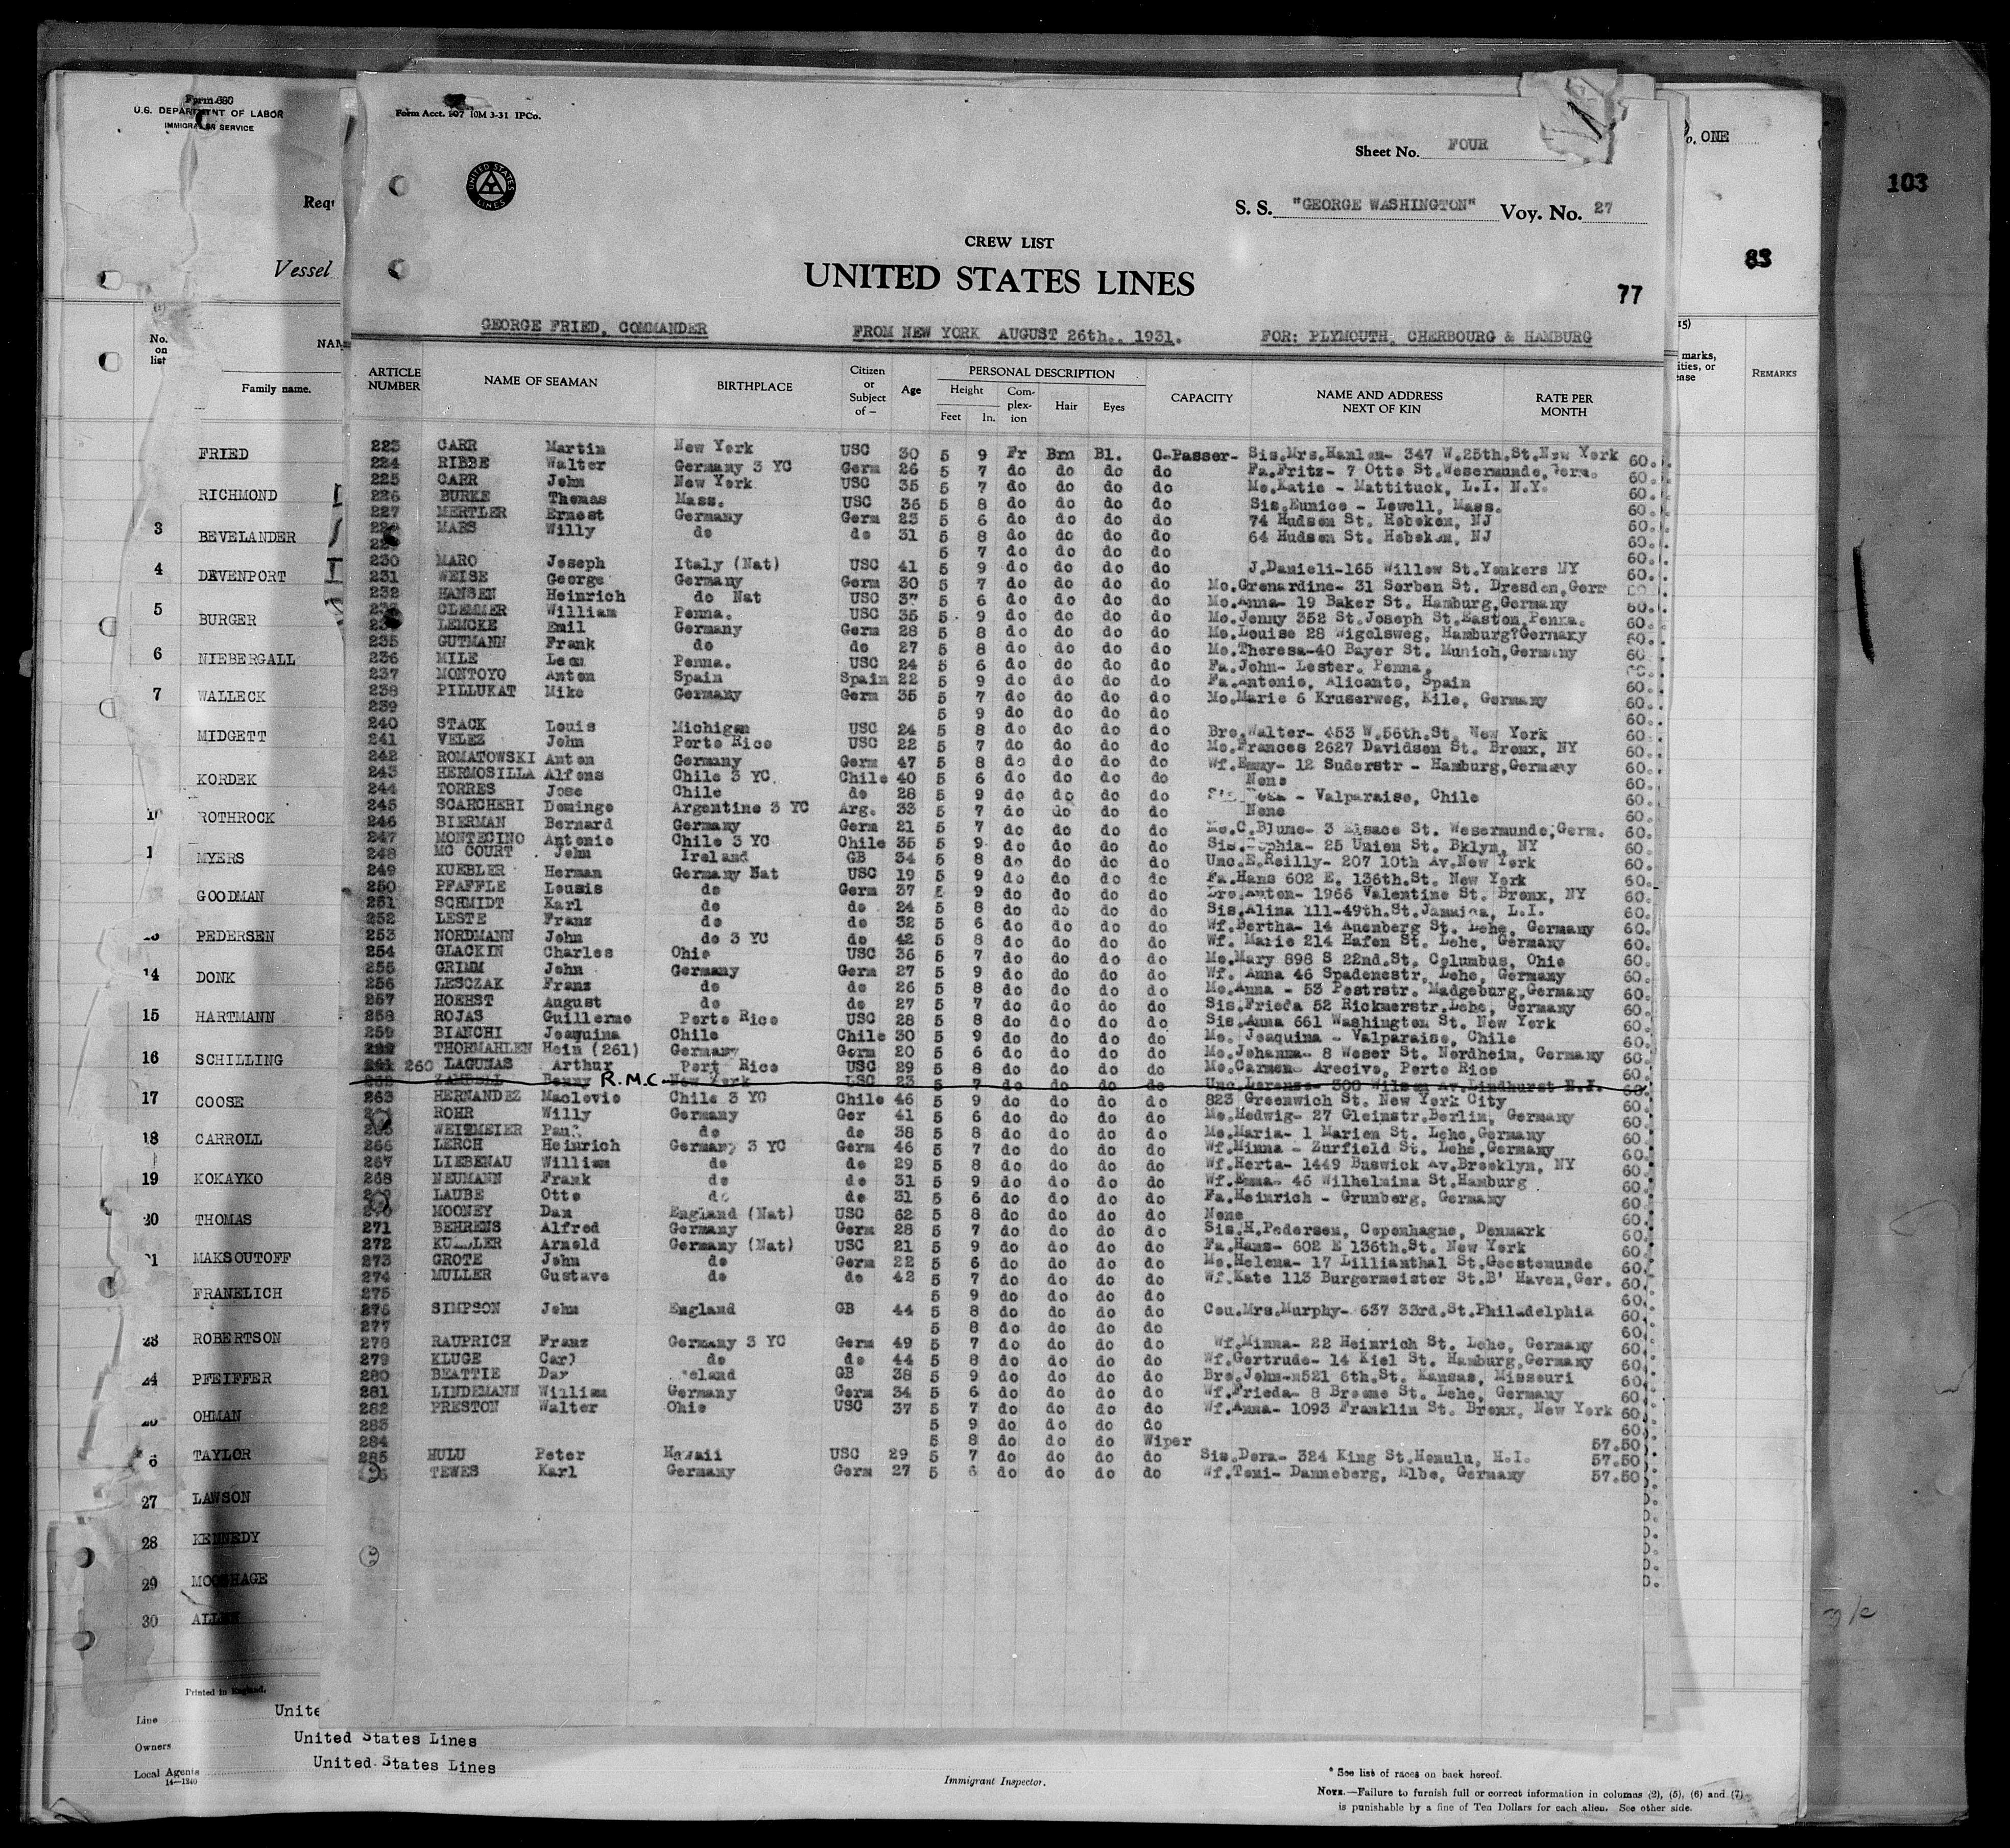 Form 680
U.S. DEPARTMENT OF LABOR
IMMIGRATION SERVICE
Vessel
No. on list
Family name.
FRIED
RICHMOND
3 BEVELANDER
4 DAVENPORT
5 BURGER
6 NIEBERGALL
7 WALLECK
MIDGETT
KORDEK
ROTHROCK
MYERS
GOODMAN
PEDERSEN
14 DONK
15 HARTMANN
16 SCHILLING
17 COOSE
18 CARROLL
19 KOKAYKO
20 THOMAS
MAKSOUTOFF
FRANELICH
ROBERTSON
24 PFEIFFER
OHMAN
6 TAYLOR
27 LAWSON
28 KENNEDY
29 MOOSHAGE
30 ALLEN
Printed in England.
Line Unite
Owners United States Lines
Local Agents United States Lines
14—1240
Form Acct. 107 10M 3-31 IPCo.
UNITED STATES LINES
Sheet No. FOUR
S. S. "GEORGE WASHINGTON" Voy. No. 27
CREW LIST
UNITED STATES LINES
77
GEORGE FRIED, COMMANDER FROM NEW YORK AUGUST 26th., 1931. FOR: PLYMOUTH, CHERBOURG & HAMBURG
ARTICLE NUMBER NAME OF SEAMAN BIRTHPLACE Citizen or Subject of — Age PERSONAL DESCRIPTION Height Feet In. Complexion Hair Eyes CAPACITY NAME AND ADDRESS NEXT OF KIN RATE PER MONTH
223 CARR Martin New York USC 30 5 9 Fr Brn Bl. C-Passer- Sis.Mrs.Hanlon- 347 W.25th.St.New York 60.
224 RIBBE Walter Germany 3 YC Germ 26 5 7 do do do do Fa.Fritz- 7 Otto St.Wesermunde, 60.
225 CARR John New York USC 35 5 7 do do do do Mo.Katie - Mattituck, L.I. N.Y. 60.
226 BURKE Thomas Mass. USC 36 5 8 do do do do Sis.Eunice - Lowell, Mass. 60.
227 MERTLER Ernest Germany Germ 23 5 6 do do do do 74 Hudson St. Hoboken, NJ 60.
MAES Willy do do 31 5 8 do do do do 64 Hudson St. Hoboken, NJ 60.
229 5 7 do do do do 60.
230 MARO Joseph Italy (Nat) USC 41 5 9 do do do do J.Danieli-165 Willow St.Yonkers NY 60.
231 WEISE George Germany Germ 30 5 7 do do do do Mo.Grenardine- 31 Serben St. Dresden,Germ
232 HANSEN Heinrich do Nat USC 37 5 6 do do do do Mo.Anna- 19 Baker St. Hamburg,Germany 60.
CLEMMER William Penna. USC 35 5 9 do do do do Mo.Jenny 352 St.Joseph St.Easton,Penna. 60.
LEMCKE Emil Germany Germ 28 5 8 do do do do Mo.Louise 28 Wigelsweg, Hamburg?Germany 60.
235 GUTMANN Frank do do 27 5 8 do do do do Mo.Theresa-40 Bayer St. Munich,Germany 60
236 MILE Leon Penna. USC 24 5 6 do do do do Fa.John- Lester. Penna.
237 MONTOYO Anton Spain Spain 22 5 9 do do do do Fa.Antonio, Alicante, Spain 60.
238 PILLUKAT Mike Germany Germ 35 5 7 do do do do Mo.Marie 6 Kruserweg, Kile, Germany 60.
239 5 9 do do do do 60.
240 STACK Louis Michigan USC 24 5 8 do do do do Bro.Walter- 453 W.56th.St. New York 60.
241 VELEZ John Porto Rico USC 22 5 7 do do do do Mo.Frances 2627 Davidson St. Bronx, NY 60.
242 ROMATOWSKI Anton Germany Germ 47 5 8 do do do do Wf.Emmy- 12 Suderstr - Hamburg,Germany 60.
243 HERMOSILLA Alfons Chile 3 YC. Chile 40 5 6 do do do do None 60.
244 TORRES Jose Chile do 28 5 9 do do do do - Valparaiso, Chile 60.
245 SCARCHERI Domingo Argentine 3 YC Arg. 33 5 7 do do do do None 60.
246 BIERMAN Bernard Germany Germ 21 5 7 do do do do Mo.C.Blume- 3 Elsace St. Wesermunde,Germ. 60.
247 MONTECINO Antonio Chile 3 YC Chile 35 5 9 do do do do Sis.Sophia- 25 Union St. Bklyn, NY 60.
248 MC COURT John Ireland GB 34 5 8 do do do do Unc.E.Reilly- 207 10th Av.New York 60.
249 KUEBLER Herman Germany Nat USC 19 5 9 do do do do Fa.Hans 602 E. 136th.St. New York 60.
250 PFAFFLE Lousis do Germ 37 9 do do do do Bro.Anton- 1966 Valentine St. Bronx, NY 60.
251 SCHMIDT Karl do do 24 5 8 do do do do Sis.Alina 111-49th.St.Jamaica, L.I. 60.
252 LESTE Franz do do 32 5 6 do do do do Wf.Bertha- 14 Auenberg St. Lehe, Germany 60.
253 NORDMANN John do 3 YC do 42 5 8 do do do do Wf. Marie 214 Hafen St. Lehe, Germany 60.
254 GLACKIN Charles Ohio USC 36 5 7 do do do do Mo.Mary 898 S 22nd.St. Columbus, Ohio 60.
255 GRIMM John Germany Germ 27 5 9 do do do do Wf. Anna 46 Spadenestr, Lehe, Germany 60.
256 LESCZAK Franz do do 26 5 8 do do do do Mo.Anna - 53 Postrstr. Madgeburg,Germany 60.
257 HOEHST August do do 27 5 7 do do do do Sis.Frieda 52 Rickmerstr.Lehe, Germany 60.
258 ROJAS Guillermo Porto Rico USC 28 5 8 do do do do Sis.Anna 661 Washington St. New York 60.
259 BIANCHI Joaquina Chile Chile 30 5 9 do do do do Mo. Joaquina - Valparaiso, Chile 60.
THORMAHLEN Hein (261) Germany Germ 20 5 6 do do do do Mo.Johanna- 8 Weser St. Nordheim, Germany 60.
261 260 LAGUNAS Arthur Port Rico USC 29 5 8 do do do do Mo.Carmen Arecivo, Porto Rico 60.
262 ZAMBELL Benny R.M.C. New York USC 23 5 7 do do do do Unc.Lorenzo- 300 Wilson Av.Lindhurst N.J. 60.
263 HERNANDEZ Maclovio Chile 3 YC Chile 46 5 9 do do do do 823 Greenwich St. New York City 60.
ROHR Willy Germany Ger 41 5 6 do do do do Mo.Hedwig- 27 Gleinstr.Berlin, Germany 60.
WEITMEIER Paul do do 38 5 8 do do do do Mo.Maria- 1 Marien St. Lehe,Germany 60.
266 LERCH Heinrich Germany 3 YC Germ 46 5 7 do do do do Wf.Minna - Zurfield St. Lehe,Germany 60.
267 LIEBENAU William do do 29 5 8 do do do do Wf.Herta- 1449 Buswick Av.Brooklyn, NY 60
268 NEUMANN Frank do do 31 5 9 do do do do Wf.Emma- 46 Wilhelmina St.Hamburg 60.
LAUBE Otto do do 31 5 6 do do do do Fa.Heinrich - Grunberg, Germany 60.
MOONEY Dan England (Nat) USC 62 5 8 do do do do None 60.
271 BEHRENS Alfred Germany Germ 28 5 7 do do do do Sis.H.Pedersen, Copenhagne, Denmark 60.
272 Arnold Germany (Nat) USC 21 5 9 do do do do Fa.Hans- 602 E 136th.St. New York 60.
273 GROTE John do Germ 22 5 6 do do do do Mo.Helena- 17 Lillianthal St.Geestemunde 60.
274 MULLER Gustave do do 42 5 7 do do do do Wf.Kate 113 Burgermeister St.B' Haven,Ger. 60.
275 5 9 do do do do 60.
276 SIMPSON John England GB 44 5 8 do do do do Cou.Mrs.Murphy- 637 33rd.St.Philadelphia 60.
277 5 8 do do do do 60.
278 RAUPRICH Franz Germany 3 YC Germ 49 5 7 do do do do Wf.Minna- 22 Heinrich St. Lehe, Germany 60.
279 KLUGE Carl do do 44 5 8 do do do do Wf.Gertrude- 14 Kiel St. Hamburg,Germany 60.
280 BEATTIE GB 38 5 9 do do do do Bro.John-n521 6th.St. Kansas, Missouri 60.
281 LINDEMANN William Germany Germ 34 5 6 do do do do Wf.Frieda- 8 Broome St. Lehe, Germany 60.
282 PRESTON Walter Ohio USC 37 5 7 do do do do Wf.Anna- 1093 Franklin St. Bronx, New York 60.
283 5 9 do do do do 60.
284 5 8 do do do Wiper 57.50
285 HULU Peter Hawaii USC 29 5 7 do do do do Sis.Dora- 324 King St.Honulu, H.I. 57.50
TEWES Karl Germany Germ 27 5 6 do do do do Wf.Toni- Danneberg, Elbe, Germany 57.50
ONE
103
83
marks,
REMARKS
Immigrant Inspector.
* See list of races on back hereof.
NOTE.—Failure to furnish full or correct information in columns (2), (5), (6) and (7)
is punishable by a fine of Ten Dollars for each alien. See other side.